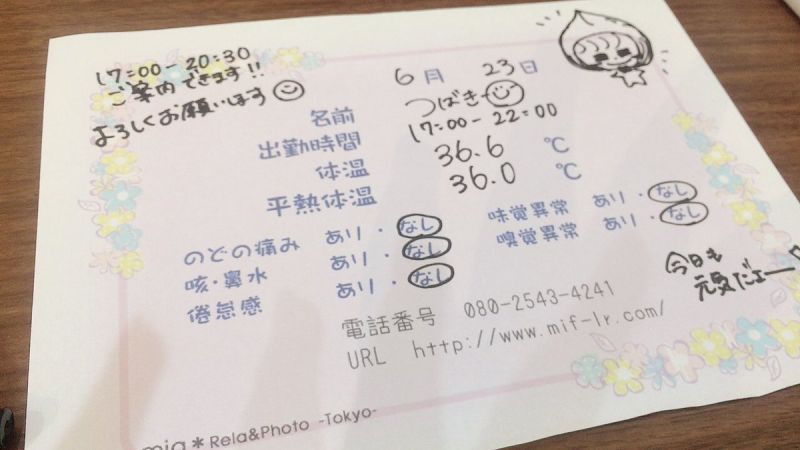 17:00-20:30
ご案内できます!!
よろしくお願いします
6月 23日
名前 つばき
出勤時間 17:00-22:00
体温 36.6 ℃
平熱体温 36.0 ℃
のどの痛み あり・なし
咳・鼻水 あり・なし
倦怠感 あり・なし
味覚異常 あり・なし
嗅覚異常 あり・なし
今日も
元気だよー
電話番号 080-2543-4241
URL http://www.mif-lr.com/
mia*Rela&Photo -Tokyo-